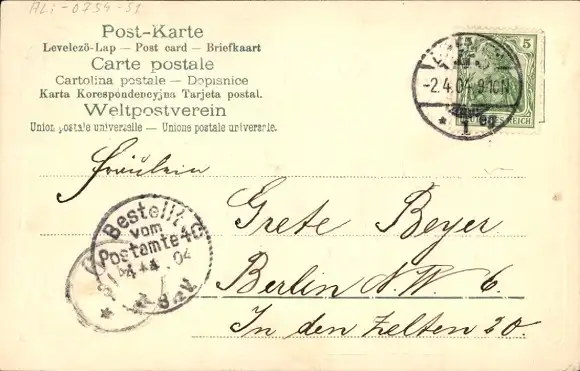 ALi-0754-31
Post-Karte
Levelező-Lap — Post card — Briefkaart
Carte postale
Cartolina postale — Dopisnice
Karta Korespondencyjna Tarjeta postal.
Weltpostverein
Union postale universelle — Unione postale universale.
5
-2.4.04.9-10N
* 1
REICH
Fräulein
Grete Beyer
Berlin N.W. 6.
In den Zelten 20.
Bestellt
vom
Postamte 40
4 04